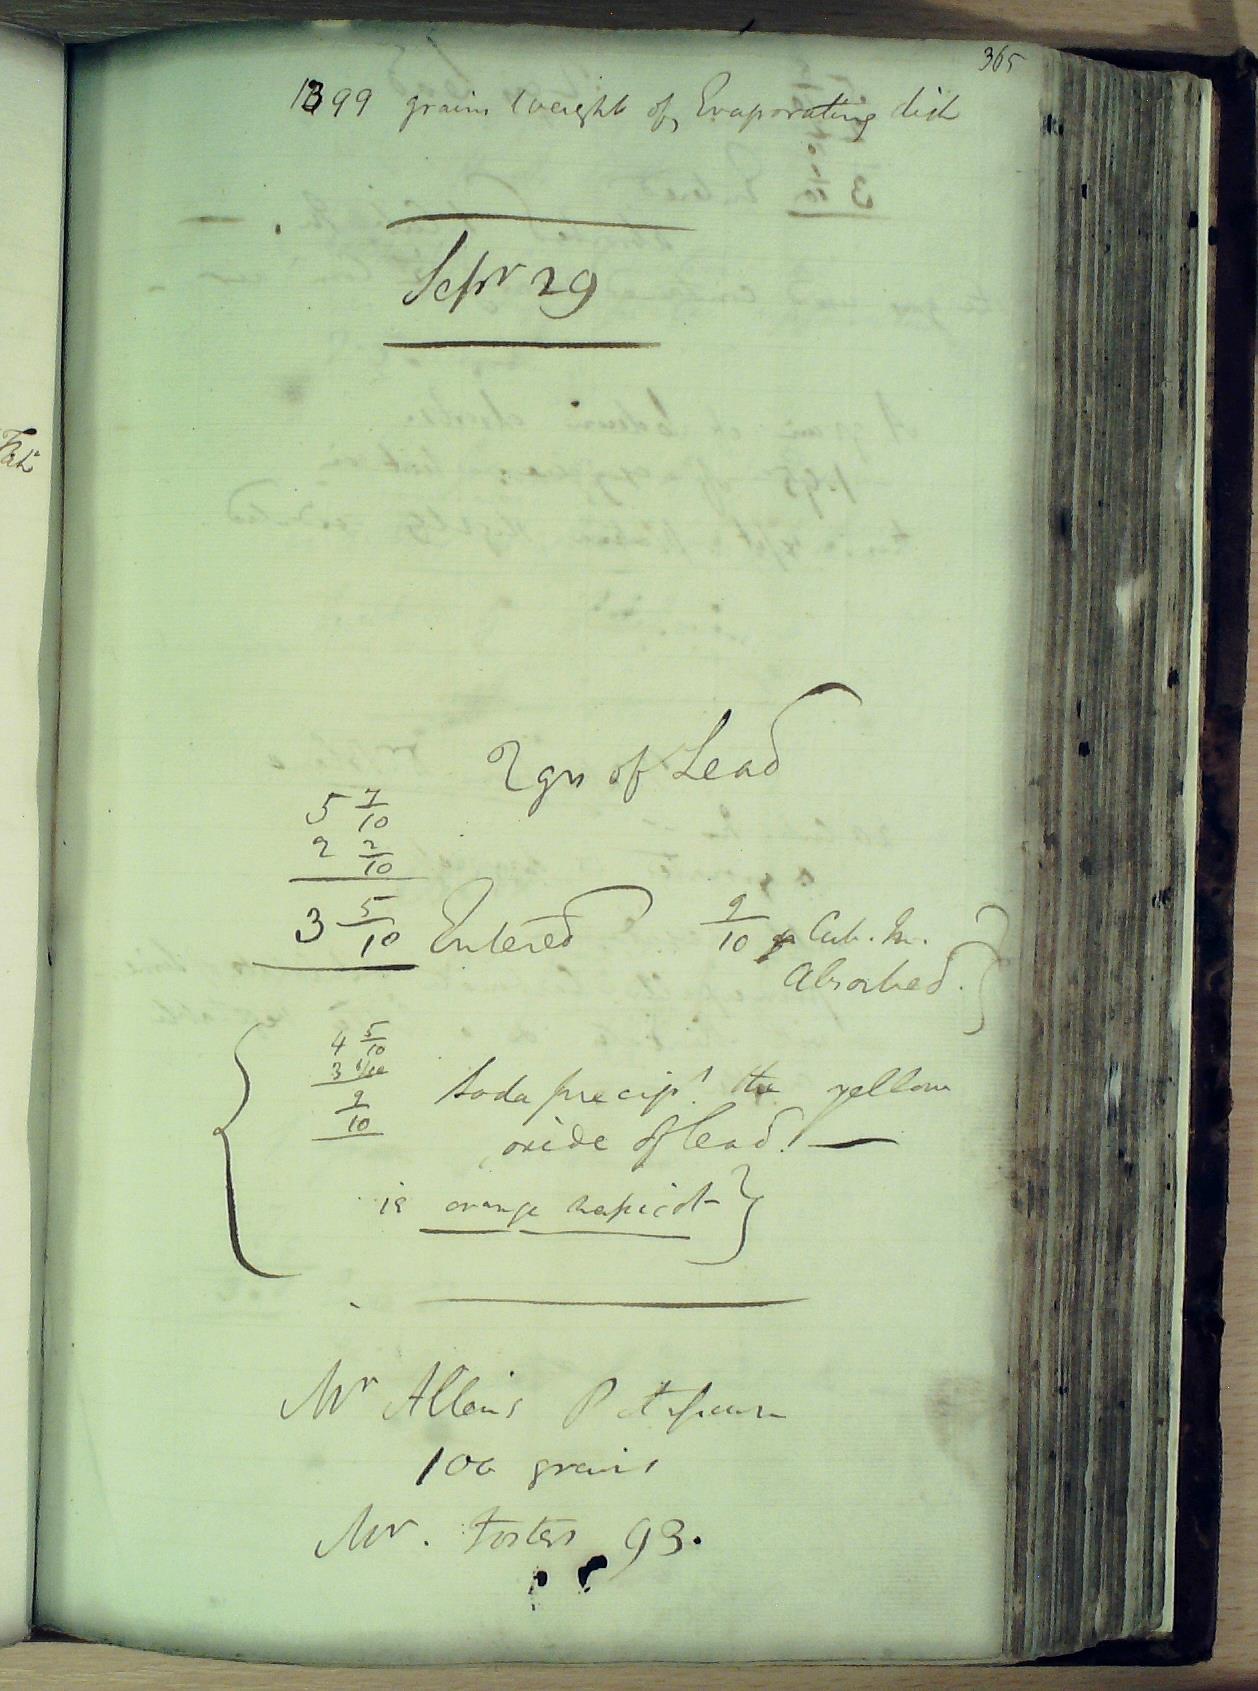 365
1399 grains weight of Evaporating dish
Sepr 29
2 grs of Lead
5 7/10
2 2/10
3 5/10 Entered 9/10 Cub. In.
Absorbed.
4 5/10
3 6/10
9/10
Soda precipt the yellow
oxide of lead. —
is orange
Mr Allens Potassium
100 grains
Mr. Fosters 93.